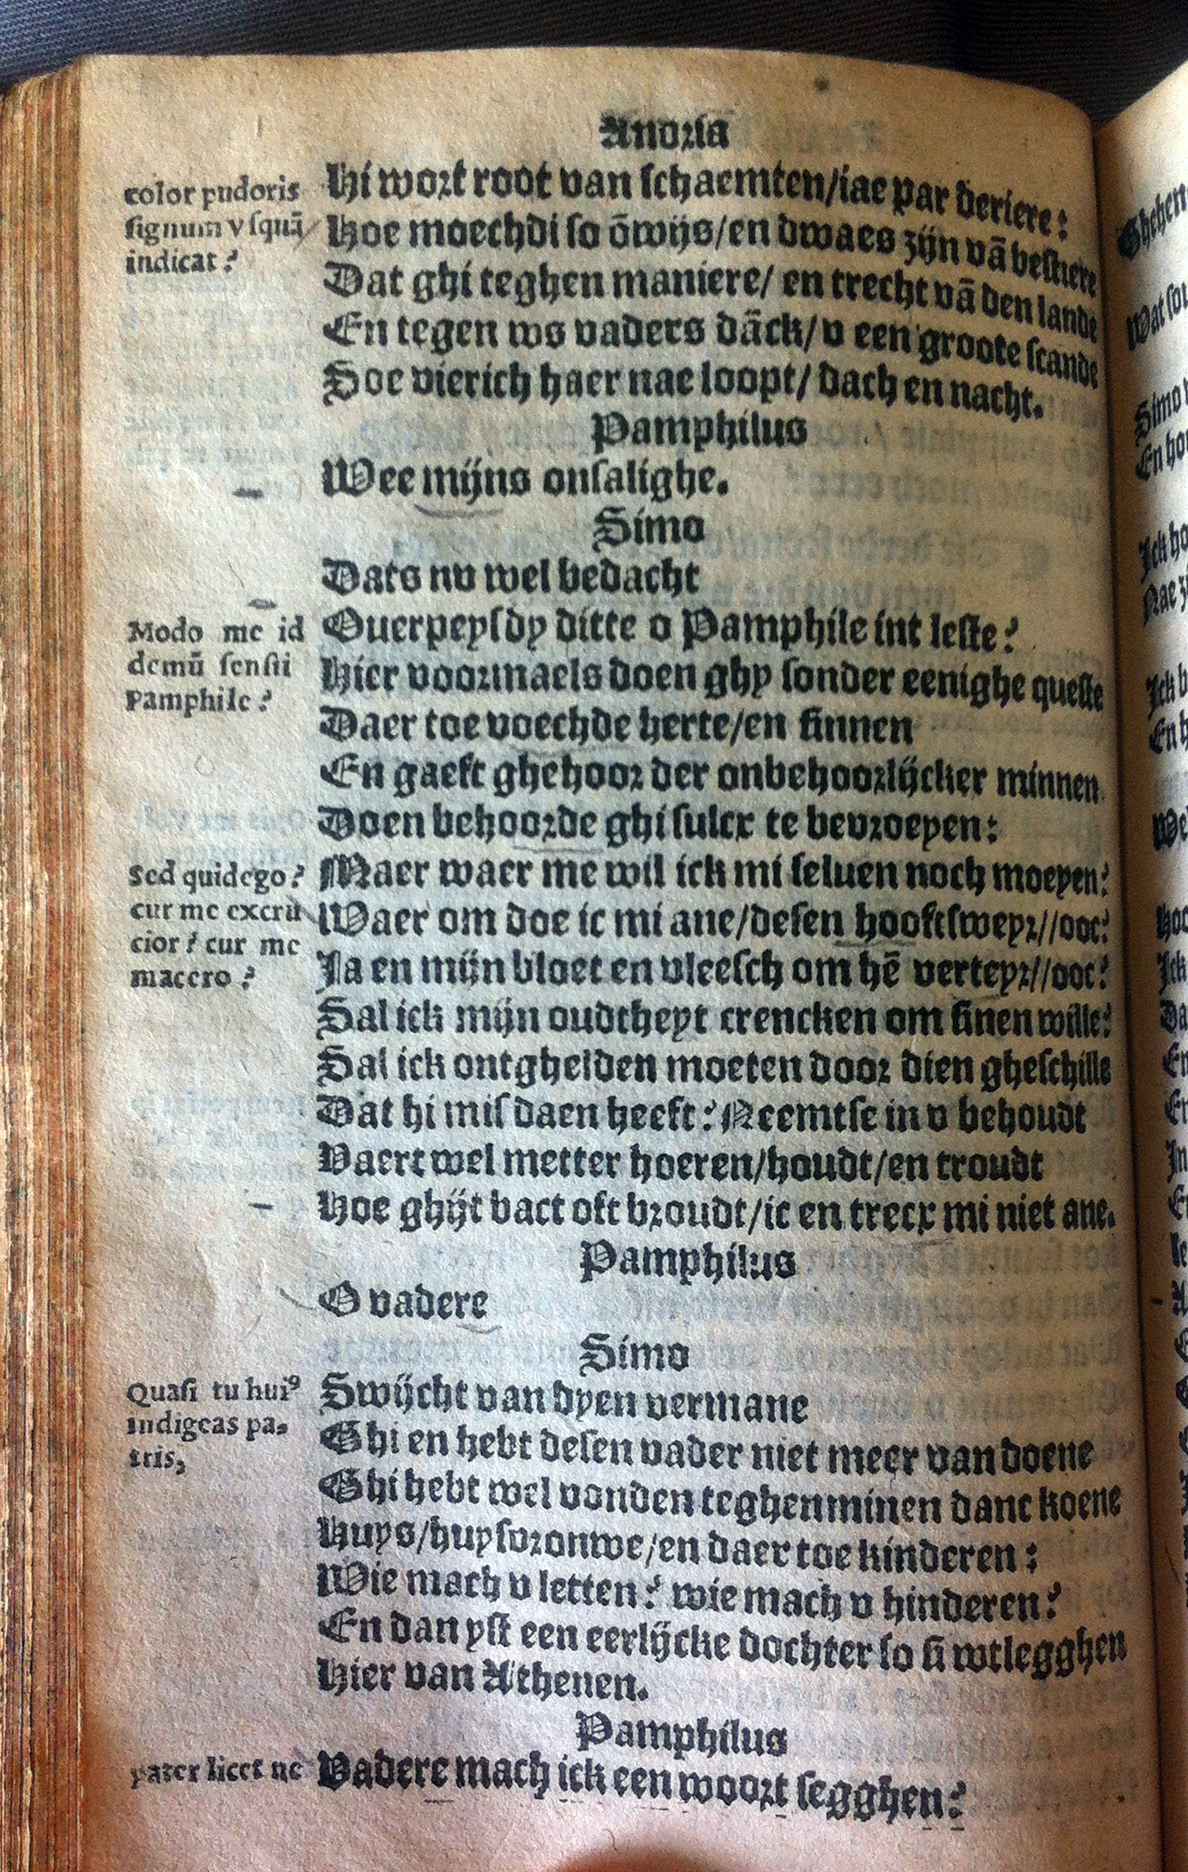 Andria
color pudoris
signum vsquã
indicat?
Hi wort root van schaemten/iae par deriere:
Hoe moechdi so õwijs/en dwaes zijn vã bestiere
Dat ghi teghen maniere/ en trecht vã den lande
En tegen ws vaders dãck/v een groote scande
Soe vierich haer nae loopt/ dach en nacht.
Pamphilus
Wee mijns onsalighe.
Simo
Dats nv wel bedacht
Modo me id
demũ sensti
Pamphile?
Ouerpeysdy ditte o Pamphile int leste?
Hier voormaels doen ghy sonder eenighe queste
Daer toe voechde herte/en sinnen
En gaeft ghehoor der onbehoorlijcker minnen
Doen behoorde ghi sulcx te bevroeyen:
Sed quidego?
cur me excru
cior? cur me
macero?
Maer waer me wil ick mi seluen noch moeyen?
Waer om doe ic mi ane/desen hooftsweyr//ooc?
Ja en mijn bloet en vleesch om hẽ verteyr//ooc?
Sal ick mijn oudtheyt crencken om sinen wille?
Sal ick ontghelden moeten door dien gheschille
Dat hi misdaen heeft? Neemtse in v behoudt
Vaert wel metter hoeren/houdt/en troudt
Hoe ghijt bact oft broudt/ic en trecx mi niet ane.
Pamphilus
O vadere
Simo
Quasi tu huiꝰ
indigeas pa-
tris,
Swijcht van dyen vermane
Ghi en hebt desen vader niet meer van doene
Ghi hebt wel vonden teghen minen danc koene
Huys/huysvronwe/en daer toe kinderen:
Wie mach v letten? wie mach v hinderen?
En dan yst een eerlijcke dochter so si wtlegghen
Hier van Athenen.
Pamphilus
pater licet ne
Vadere mach ick een woort segghen?